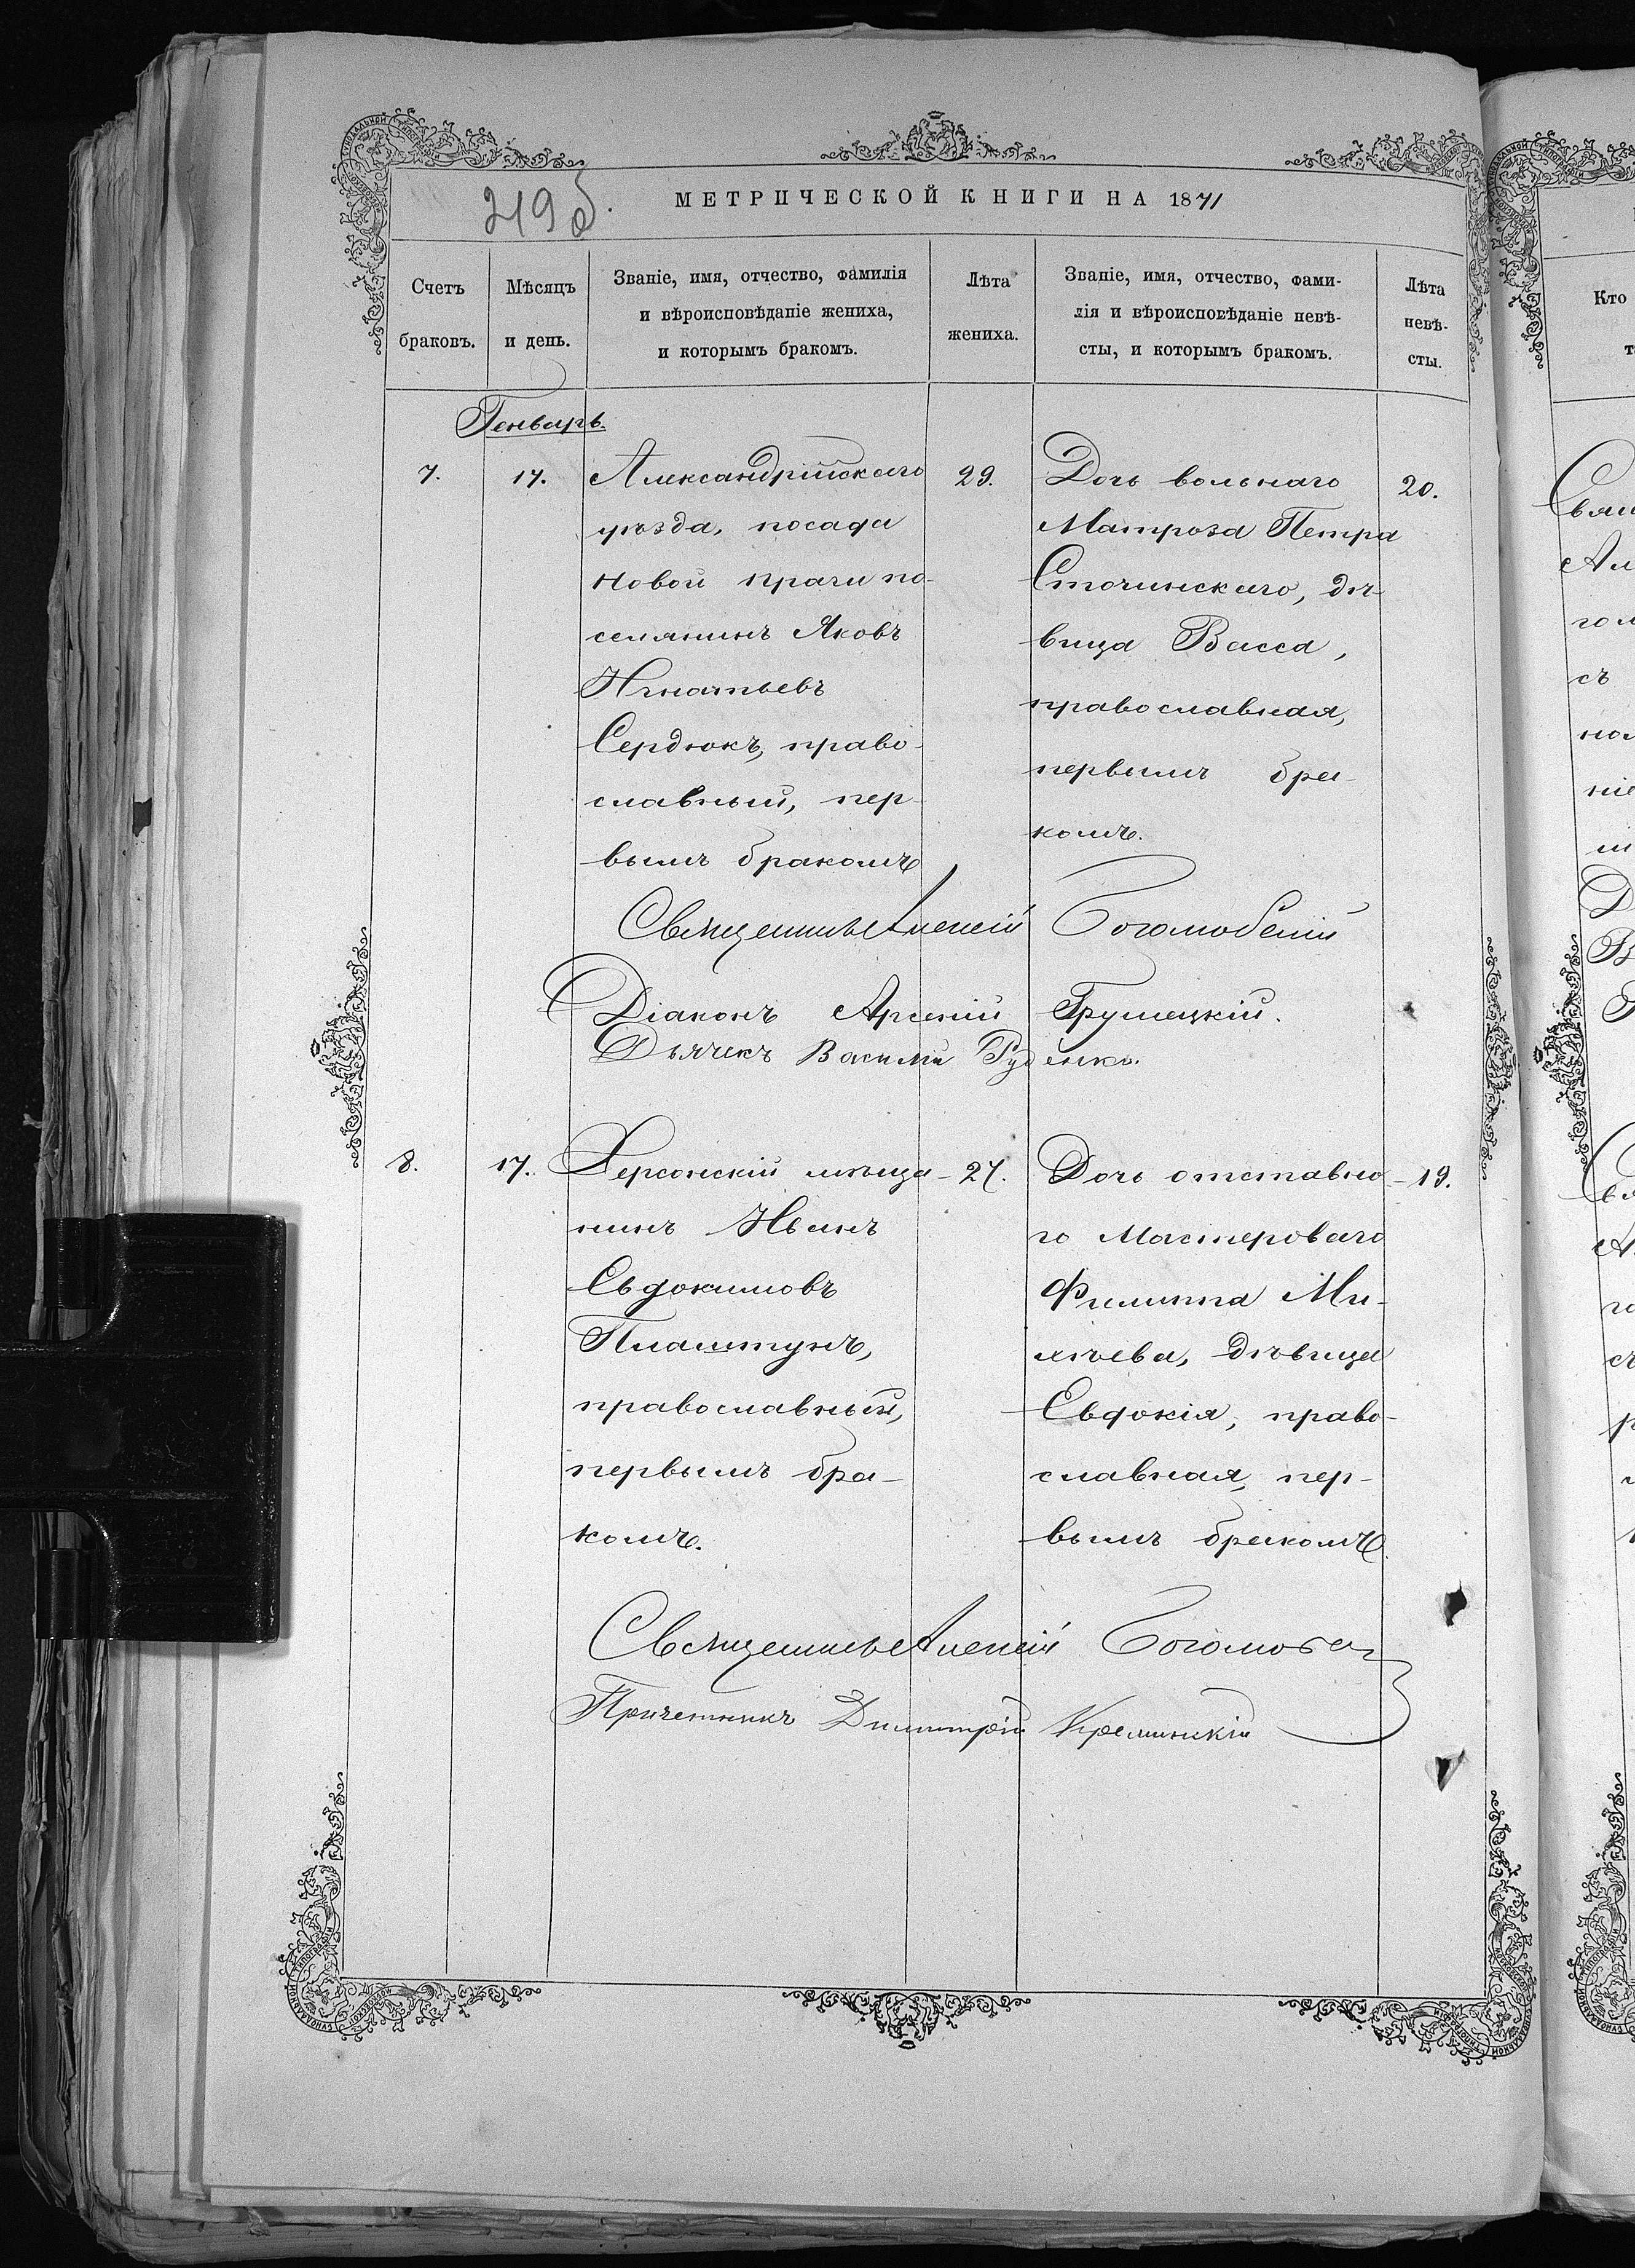 219 об.
МЕТРИЧЕСКОЙ КНИГИ НА 1871
Счетъ браковъ.
Мѣсяцъ и день.
Званіе, имя, отчество, фамилія
и вѣроисповѣданіе жениха,
и которымъ бракомъ.
Лѣта жениха.
Званіе, имя, отчество, фами-
лія и вѣроисповѣданіе невѣ-
сты, и которымъ бракомъ.
Лѣта невѣ-
сты.
Генварь.
7.
17.
Александрійскаго
уѣзда, посада
Новой Праги по-
селянинъ Яковъ
Игнатьевъ
Сердюкъ, право-
славный, пер-
вымъ бракомъ
29.
Дочь вольнаго
Матроза Петра
Сточинскаго, дѣ-
вица Васса,
православная,
первымъ бра-
комъ.
20.
Священникъ Алексій Боголюбскій
Діаконъ Арсеній Грушецкій.
Дьячекъ Василій Руденко.
8.
17.
Херсонскій мѣща-
нинъ Иванъ
Евдокимовъ
Плаштунъ,
православный,
первымъ бра-
комъ.
27.
Дочь отставно-
го Мастероваго
Филиппа Ми-
хѣева, дѣвица
Евдокія, право-
славная, пер-
вымъ бракомъ.
19.
Священникъ Алексій
Причетникъ Димитрій
Кто